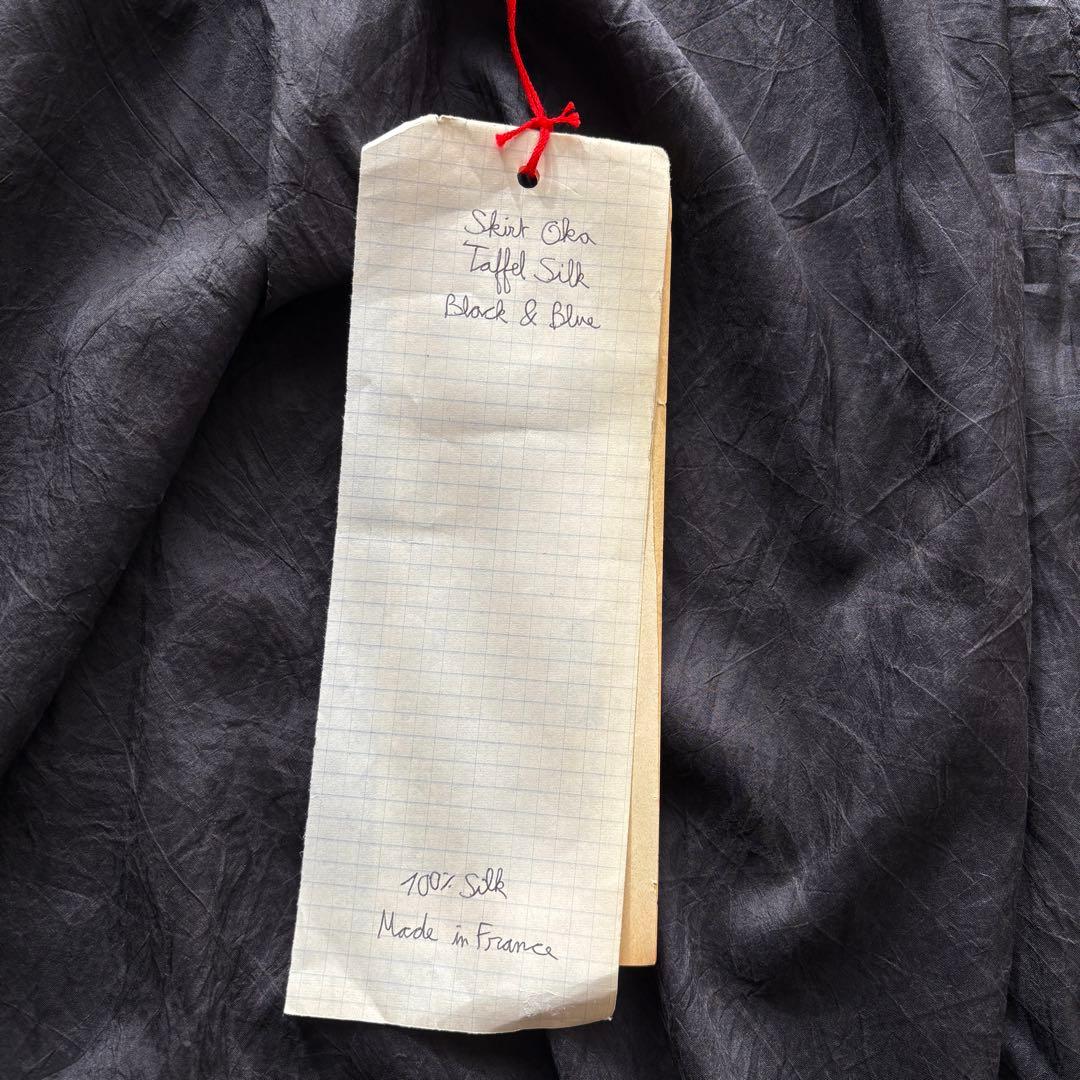 Skirt Oka
Taffel Silk
Black & Blue
100% Silk
Made in France